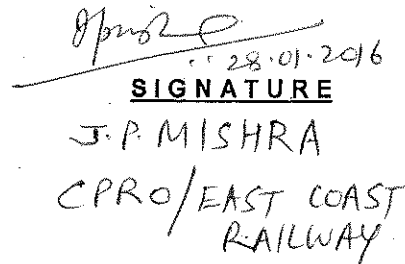 28.01.2016
SIGNATURE
J.P. MISHRA
CPRO/EAST COAST
RAILWAY.